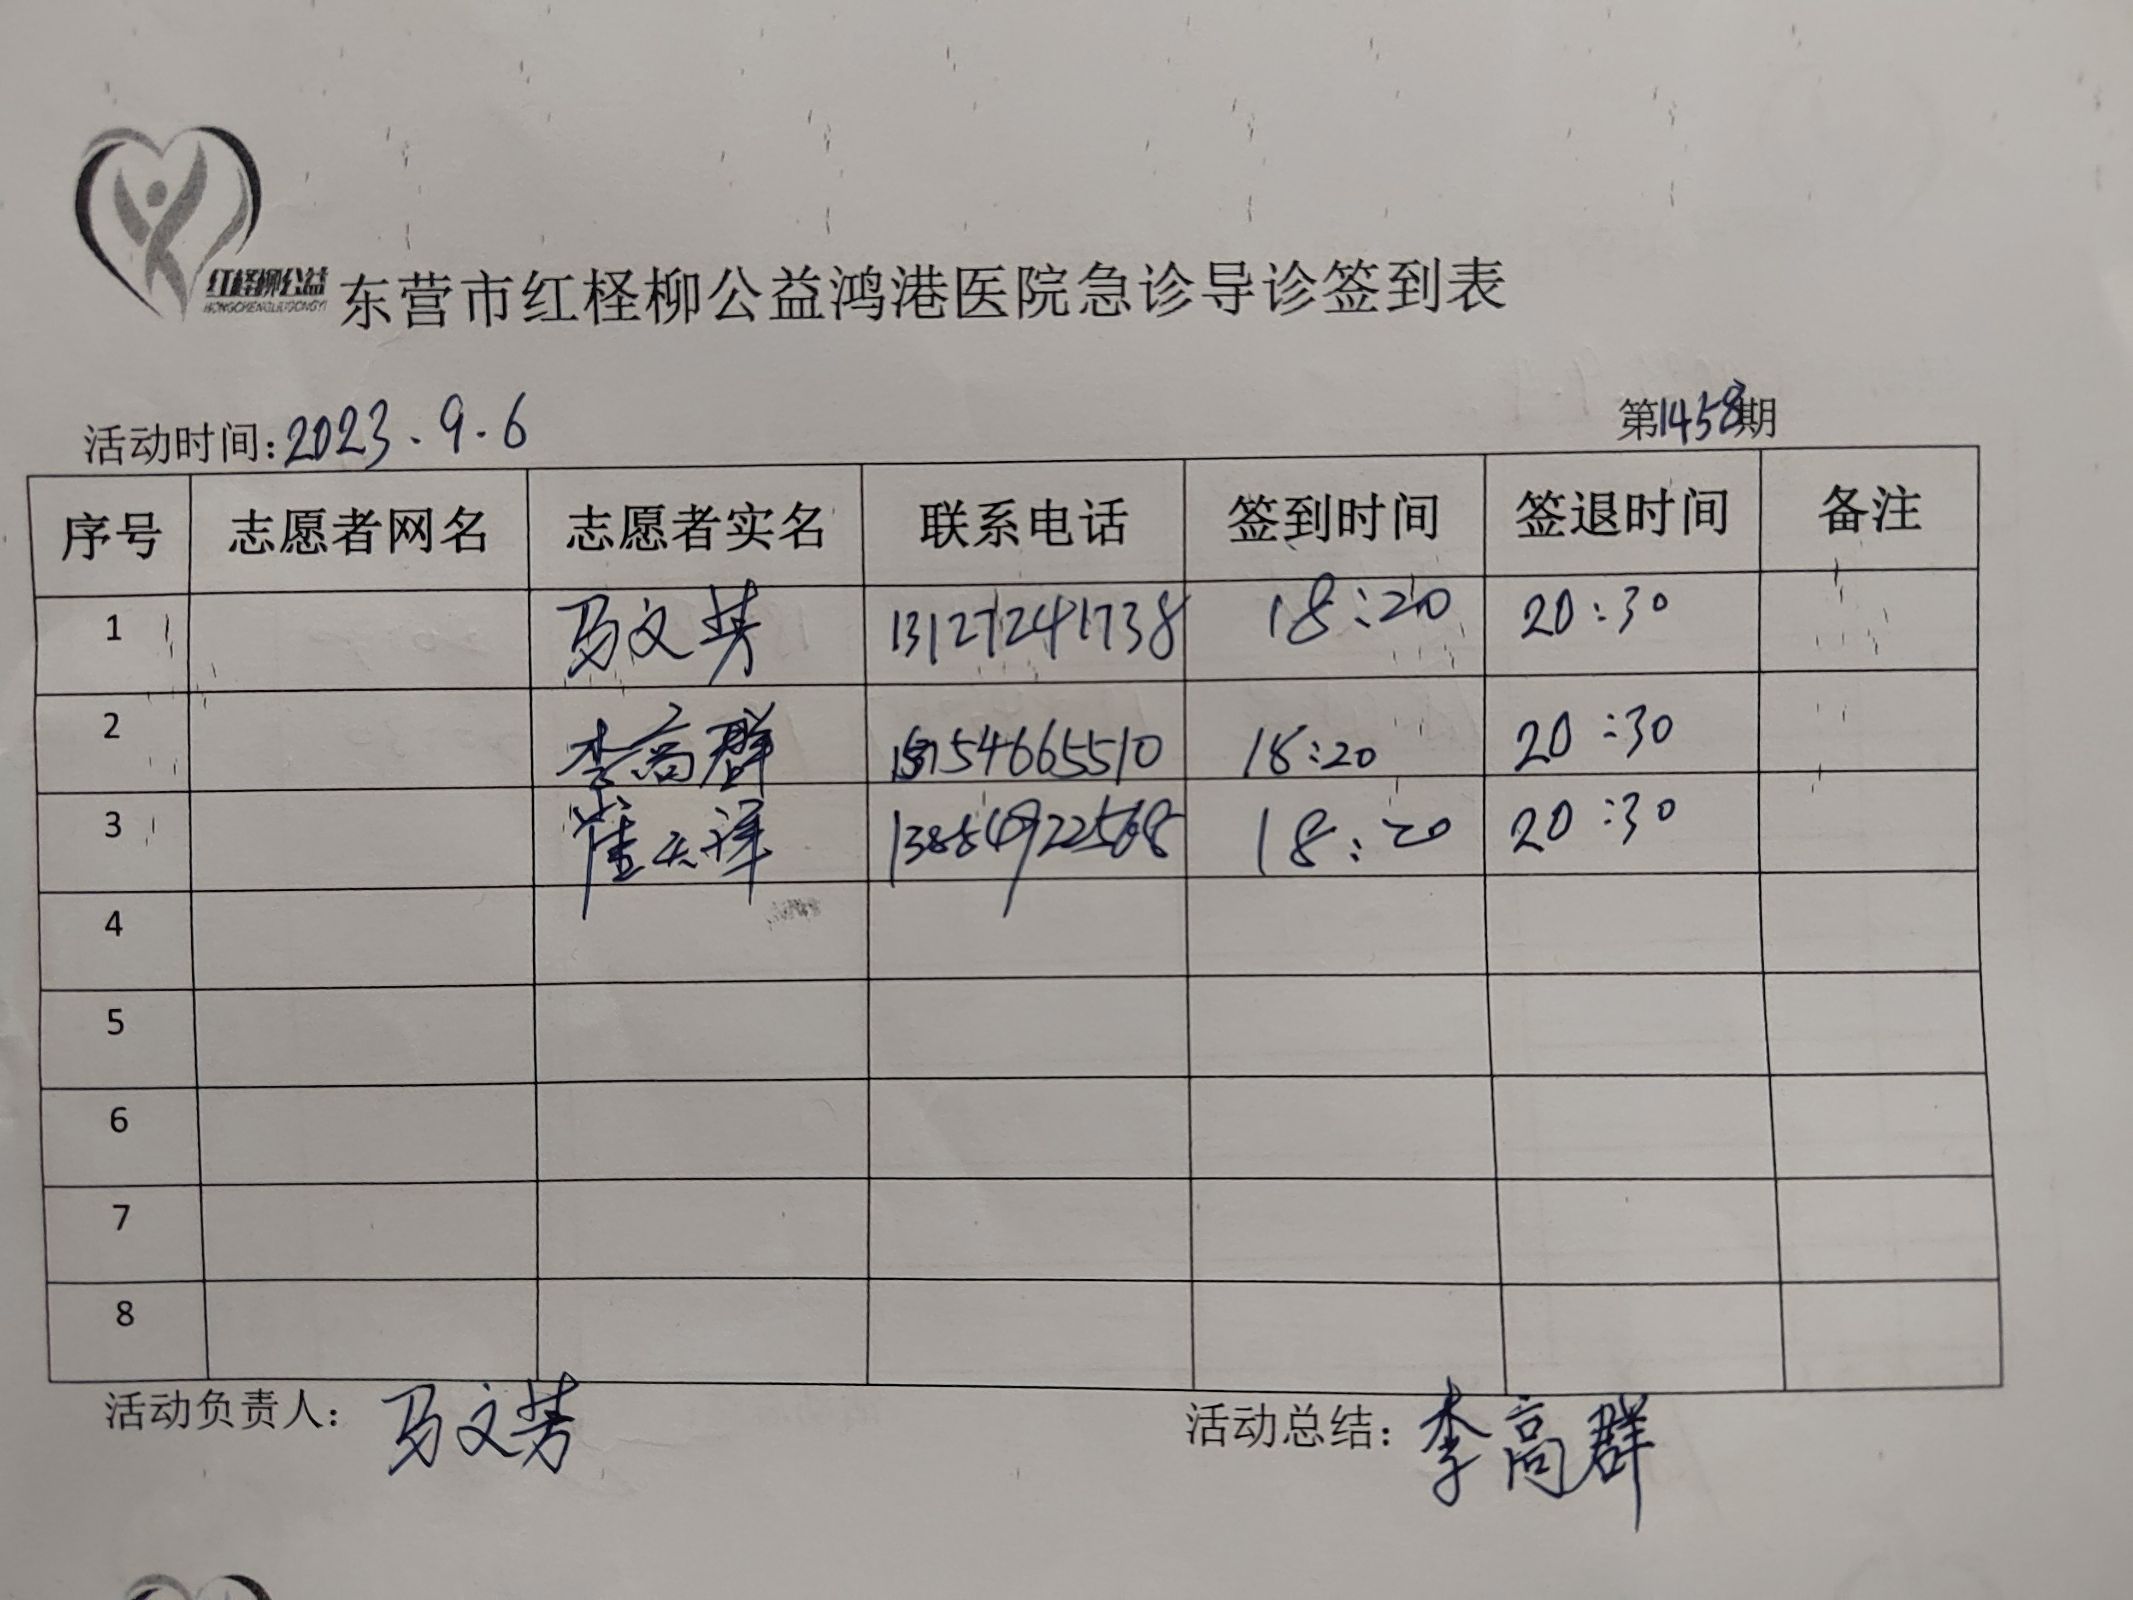 红柽柳公益
HONGCHENGLIUGONGYI
东营市红柽柳公益鸿港医院急诊导诊签到表
活动时间:2023.9.6 第1458期
序号 志愿者网名 志愿者实名 联系电话 签到时间 签退时间 备注
1 马文芳 13127241738 18:20 20:30
2 李高群 54665510 18:20 20:30
3 崔天祥 18:20 20:30
4
5
6
7
8
活动负责人: 马文芳 活动总结: 李高群